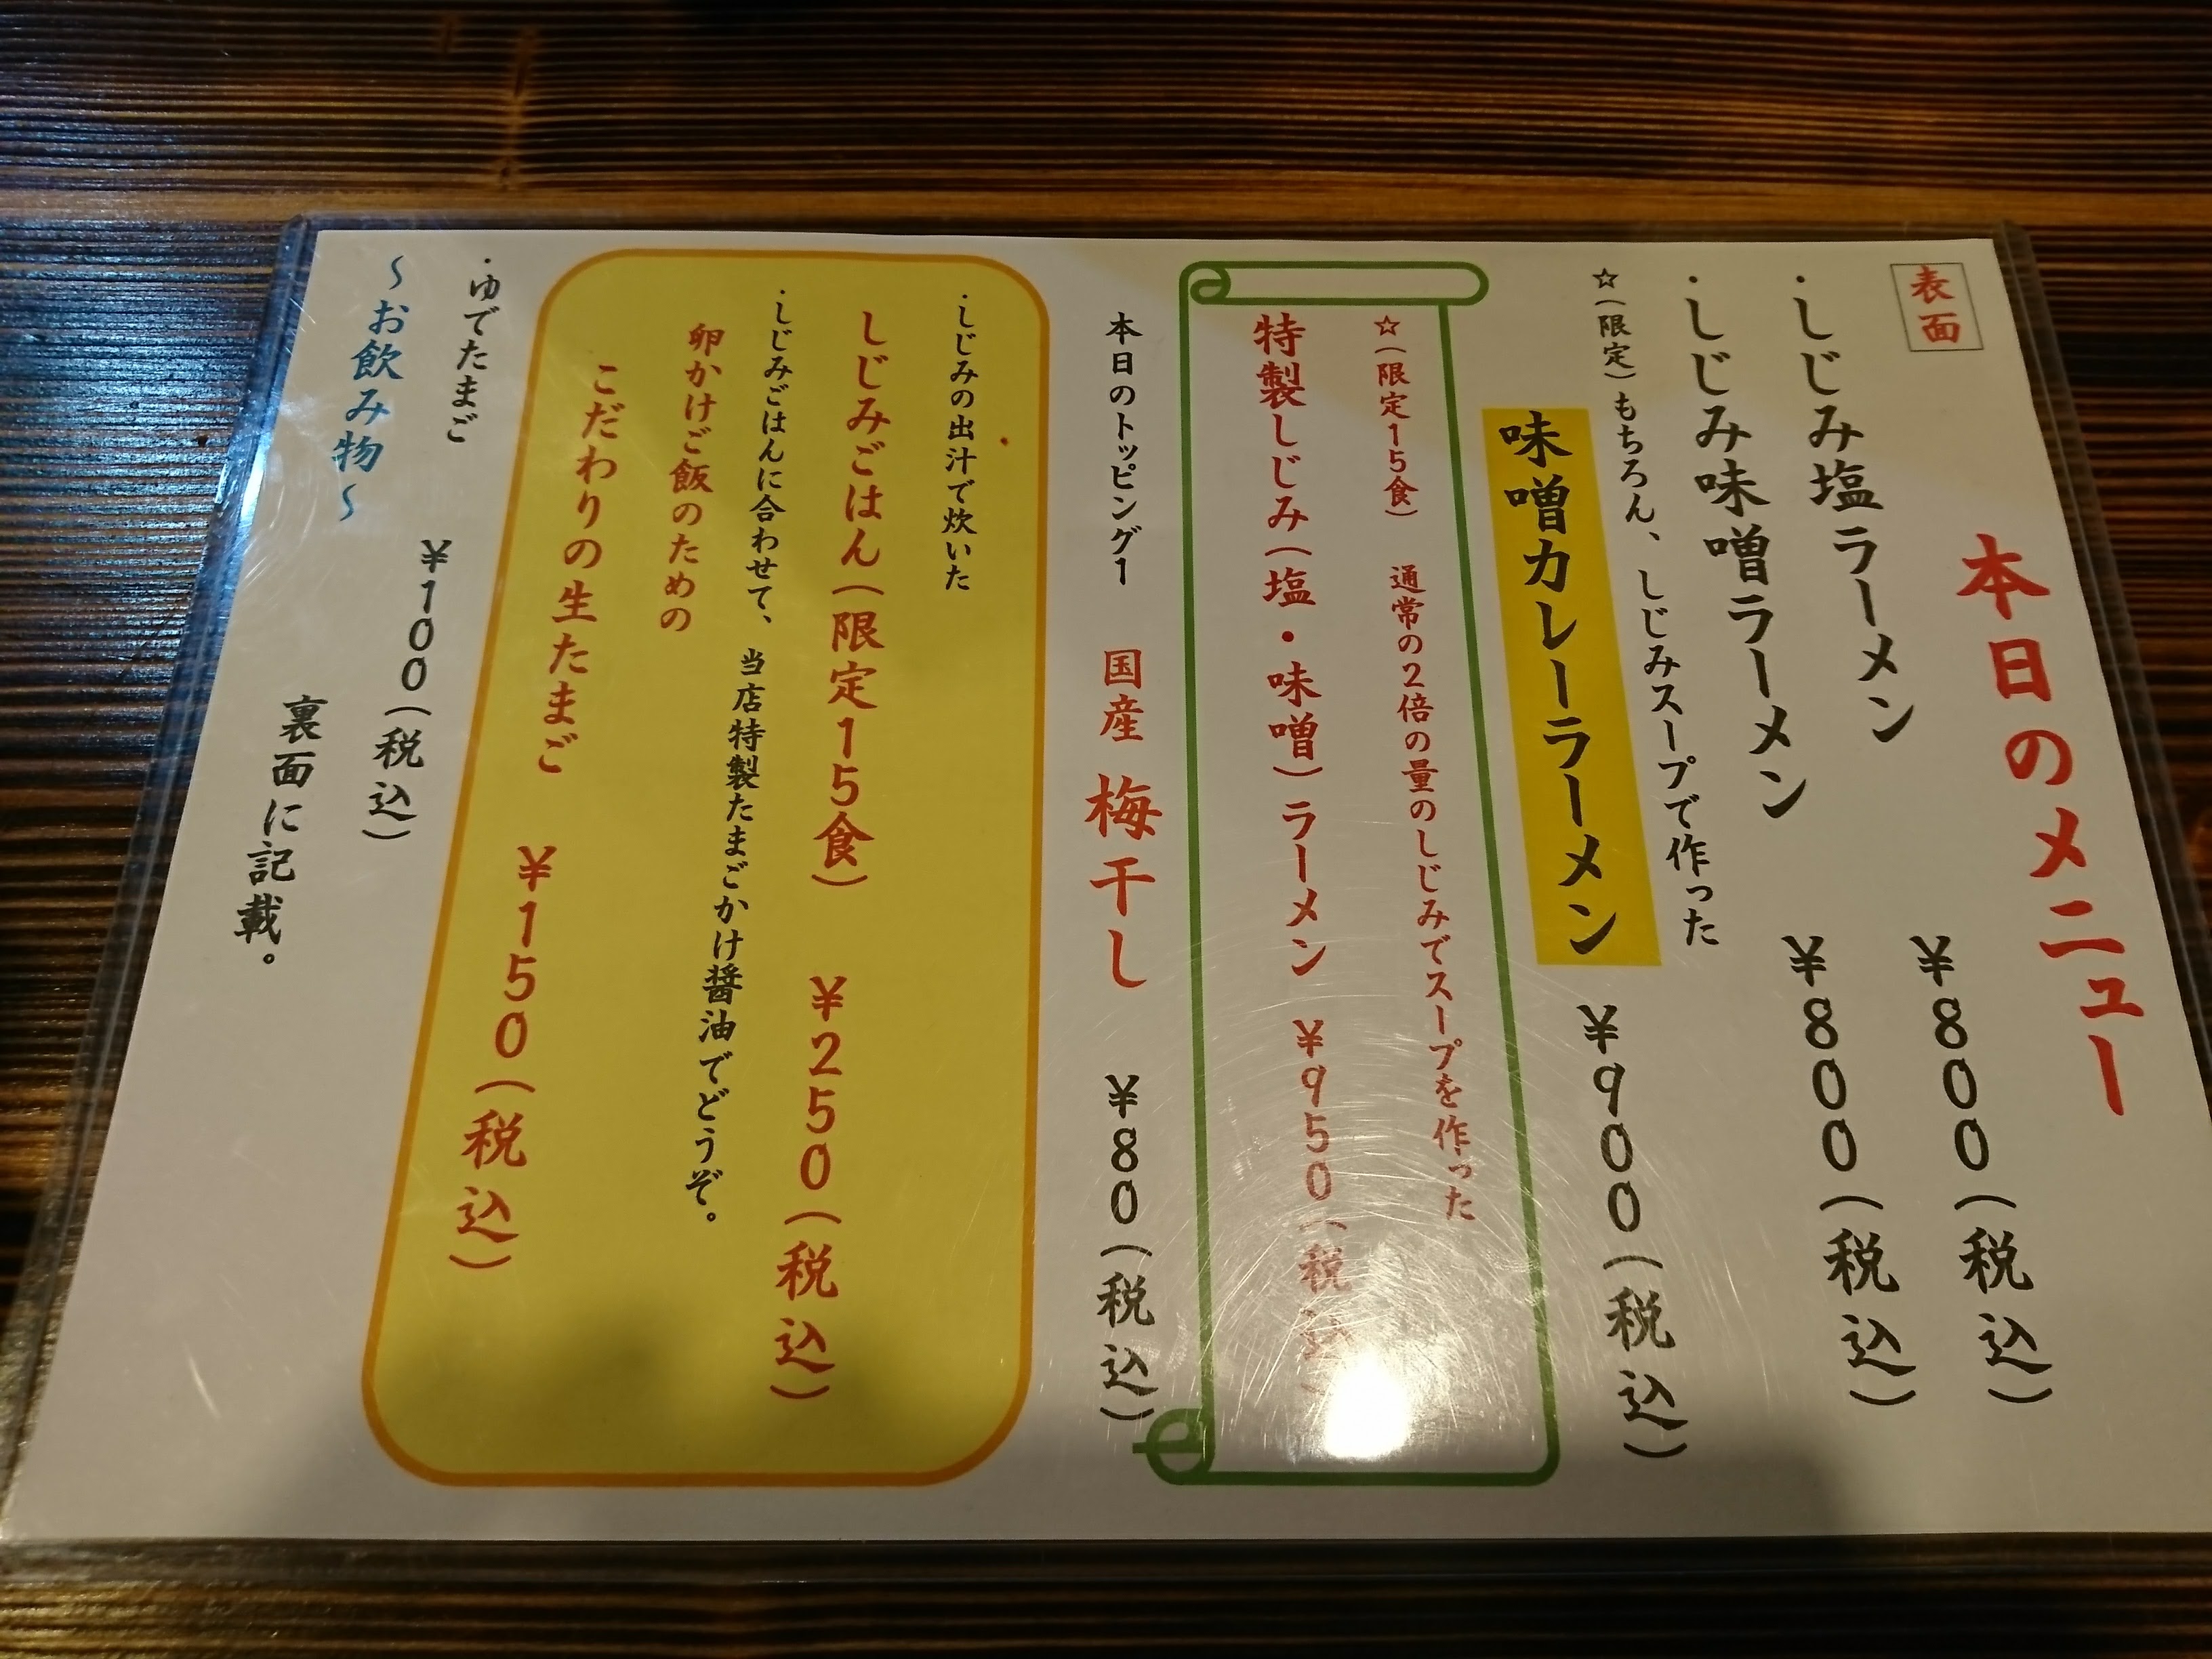 表面
本日のメニュー
・しじみ塩ラーメン ¥800(税込)
・しじみ味噌ラーメン ¥800(税込)
☆(限定)もちろん、しじみスープで作った
味噌カレーラーメン ¥900(税込)
☆(限定15食) 通常の2倍の量のしじみでスープを作った
特製しじみ(塩・味噌)ラーメン ¥950(税込)
本日のトッピング1 国産 梅干し ¥80(税込)
・しじみの出汁で炊いた
しじみごはん(限定15食) ¥250(税込)
・しじみごはんに合わせて、当店特製たまごかけ醤油でどうぞ。
卵かけご飯のための
こだわりの生たまご ¥150(税込)
・ゆでたまご ¥100(税込)
~お飲み物~
裏面に記載。